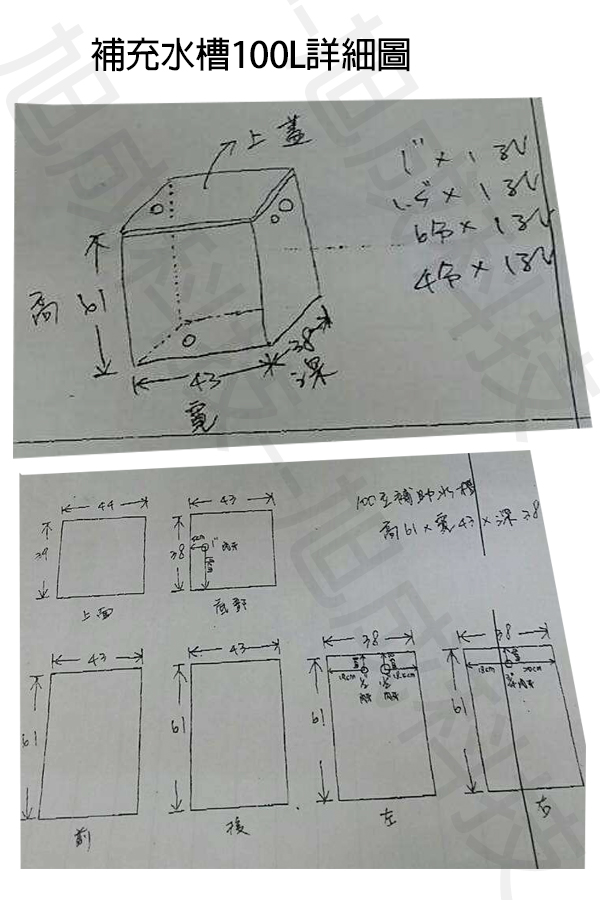 補充水槽100L詳細圖
上蓋
1" × 1 孔
1.5" × 1 孔
6分 × 1孔
4分 × 1孔
高 61
43
寬
38
深
100L補助水槽
高61 × 寬43 × 深38
44
39
上面
43
38
1"
底部
43
61
前
43
61
後
38
61
18cm
左
38
61
18cm
20cm
右
旭成科技